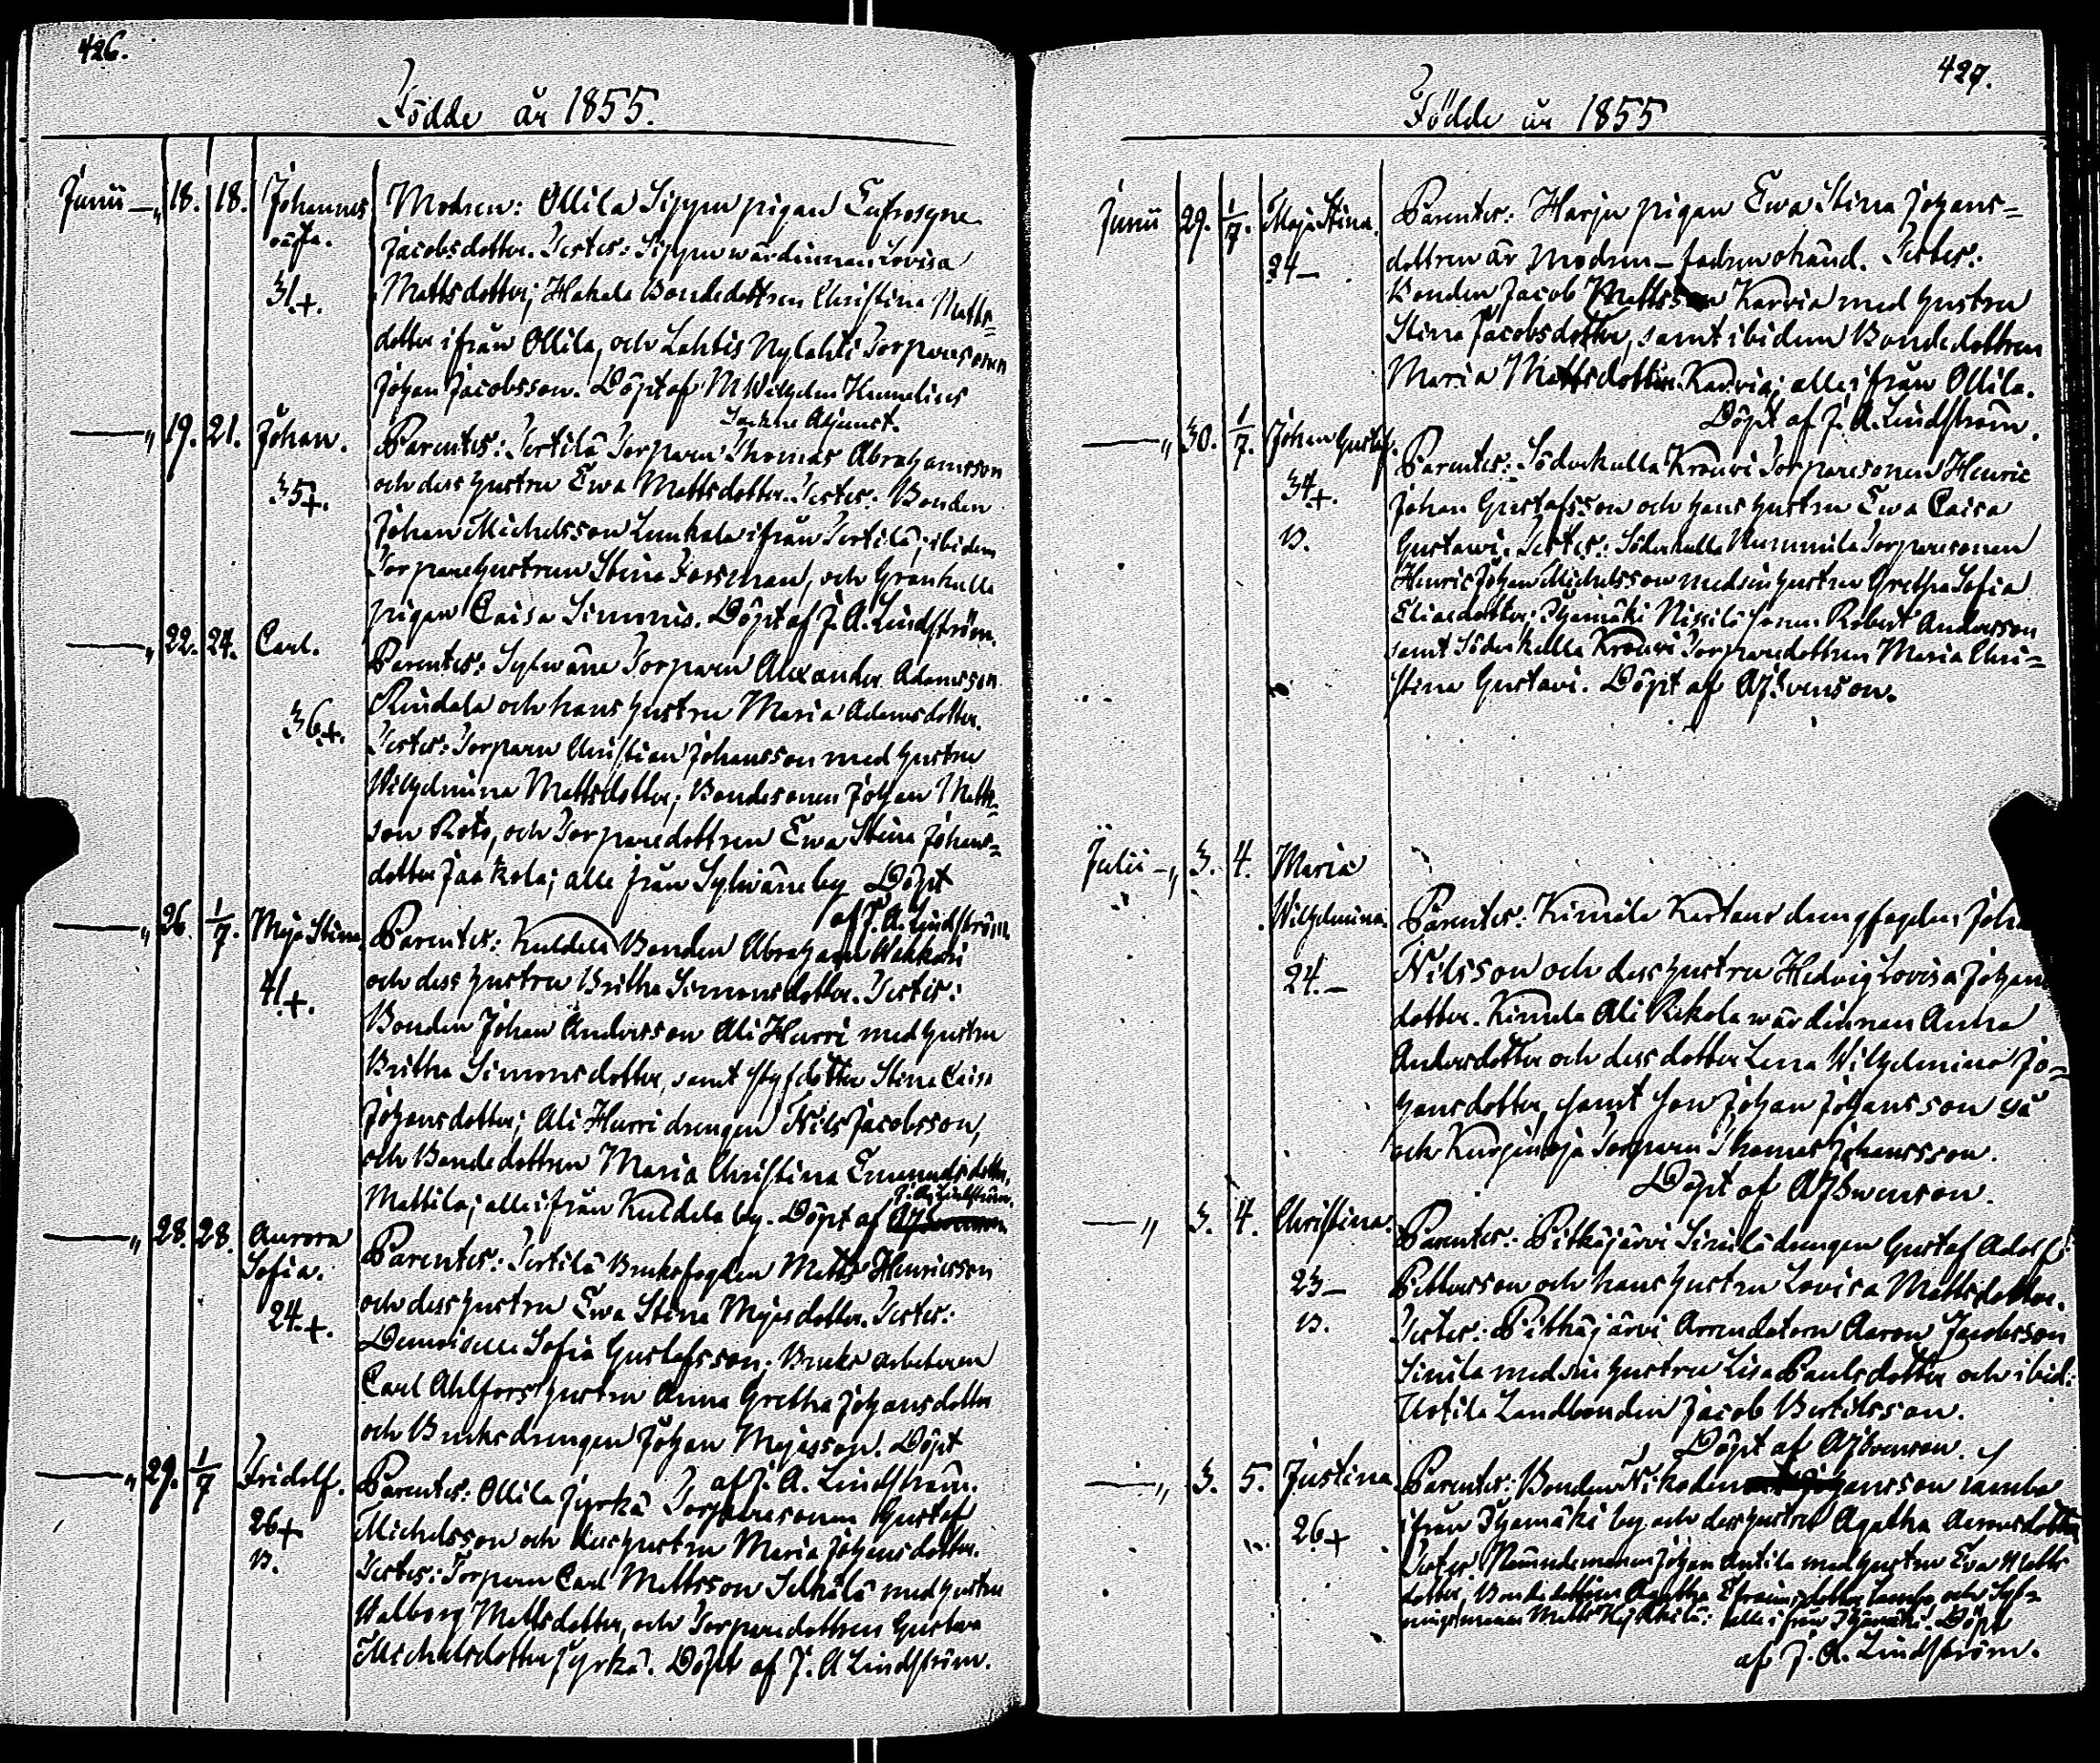 426.
Födde år 1855.
Junii — „ 18. 18. Johannes Modren: Ollila Sippu pigan Eufrosyne
oäkta. Jacobsdotter. Testes: Sippu wärdinnan Lovisa
31.+. Mattsdotter; Hakala Bondedottren Christina Matts=
dotter ifrån Ollila, och Lahtis Nylahti Torparesonen
Johan Jacobsson. Döpt af M Wilhelm Hemelius
Sockne Adjunct.
— „ 19. 21. Johan. Parentes: Tertilä Torparen Thomas Abrahamsson
och dess hustru Ewa Mattsdotter. Testes: Bonden
35+. Johan Michelsson Lunkala ifrån Tertilä; ibidem
Torparehustrun Stina Forsman, och Grankulla
pigan Caisa Simonis. Döpt af J. A. Lindström.
— „ 22. 24. Carl. Parentes: Sylwäne Torparen Alexander Adamsson
Rindala och hans hustru Maria Adamsdotter.
36+. Testes: Torparen Christian Johansson med hustru
Wilhelmina Mattsdotter; Bondesonen Johan Matts=
son Roto, och Torparedottren Ewa Stina Johans=
dotter Jaakola; alle från Sylwäne by Döpt
af J. A. Lindström.
— „ 26. 1/7. Maja Stina Parentes: Kuldela Bonden Abraham Wakkari
och dess hustru Britha Simonsdotter. Testes:
41+. Bonden Johan Andersson Ali Hurri med hustru
Britha Simonsdotter, samt styfdotter Stina Caisa
Johansdotter; Ali Hurri drengen Nils Jacobsson,
och Bondedottren Maria Christina
Mattila; alle ifrån Kuldela by. Döpt af J. A. Lindström.
— „ 28. 28. Aurora Parentes: Tertilä Bruksfogden Matts Henricsson
Sofia. och dess hustru Ewa Stina Majasdotter. Testes:
24.+. Demoiselle Sofia Gustafsson; Bruks arbetaren
Carl Ahlfors hustru Anna Gretha Johansdotter
och Bruksdrengen Johan Majasson. Döpt
af J. A. Lindström.
— „ 29. 1/7 Fridolf. Parentes: Ollila Jyrkä Torparesonen Gustaf
26+ Michelsson och hustru Maria Johansdotter.
B. Testes: Torparen Carl Mattsson Selkälä med hustru
Walborg Mattsdotter, och Torparedottren Gustava
Michelsdotter Jyrkä. Döpt af J. A Lindström.
427.
Födde år 1855
Junii 29. 1/7. Maja Stina. Parentes: Harju pigan Ewa Stina Johans=
24— dottren är Modren — fadren okänd. Testes:
Bonden Jacob Mattsson Karvia med hustru
Stina Jacobsdotter, samt ibidem Bondedottren
Maria Mattsdotter Karvia; alle ifrån Ollila.
Döpt af J. A. Lindström.
— „ 30. 1/7. Johan Gustaf. Parentes: Söderkulla Krouvi Torparesonen Henric
34+. Johan Gustafsson och hans hustru Ewa Caisa
B. Gustavi. Testes: Söderkulla Nummila Torparesonen
Henric Johan Michelsson med sin hustru Gretha Sofia
Eliasdotter; Ihamäki Nissilä sonen Robert Andersson
samt Söderkulla Krouvi Torparedottren Maria Chri=
stina Gustavi. Döpt af AJSvenson.
Julii — „ 3. 4. Maria
Wilhelmina. Parentes: Kimila Kartano drengfogden Joha
24.— Nilsson och dess hustru Hedvig Lovisa Johans
dotter. Kimila Ali Rikala wärdinnan Anna
Andersdotter och dess dotter Lena Wilhelmina Jo=
hansdotter, samt son Johan Johansson
och Torparen Thomas Johansson.
Döpt af AJSwenson.
— „ 3. 4. Christina. Parentes: Pitkäjärvi Simila drengen Gustaf Adolf
23— Pettersson och hans hustru Lovisa Mattsdotter.
B. Testes: Pitkäjärvi Arrendatorn Aaron Jacobsson
Simila med sin hustru Lisa Paulsdotter och ibid:
Uotila Landbonden Jacob Bertilsson.
Döpt af AJSvenson.
— „ 3. 5. Justina Parentes: Bonden Nikodem Johansson Lambo
26+ ifrån Ihamäki by och dess hustru Agatha Aaronsdotter
Testes: Nämndemannen Johan Antila med hustru Eva Matts
dotter, Bondedottren Agatha Efraimsdotter Lambo och
alle ifrån Ihamäki. Döpt
af J. A. Lindström.